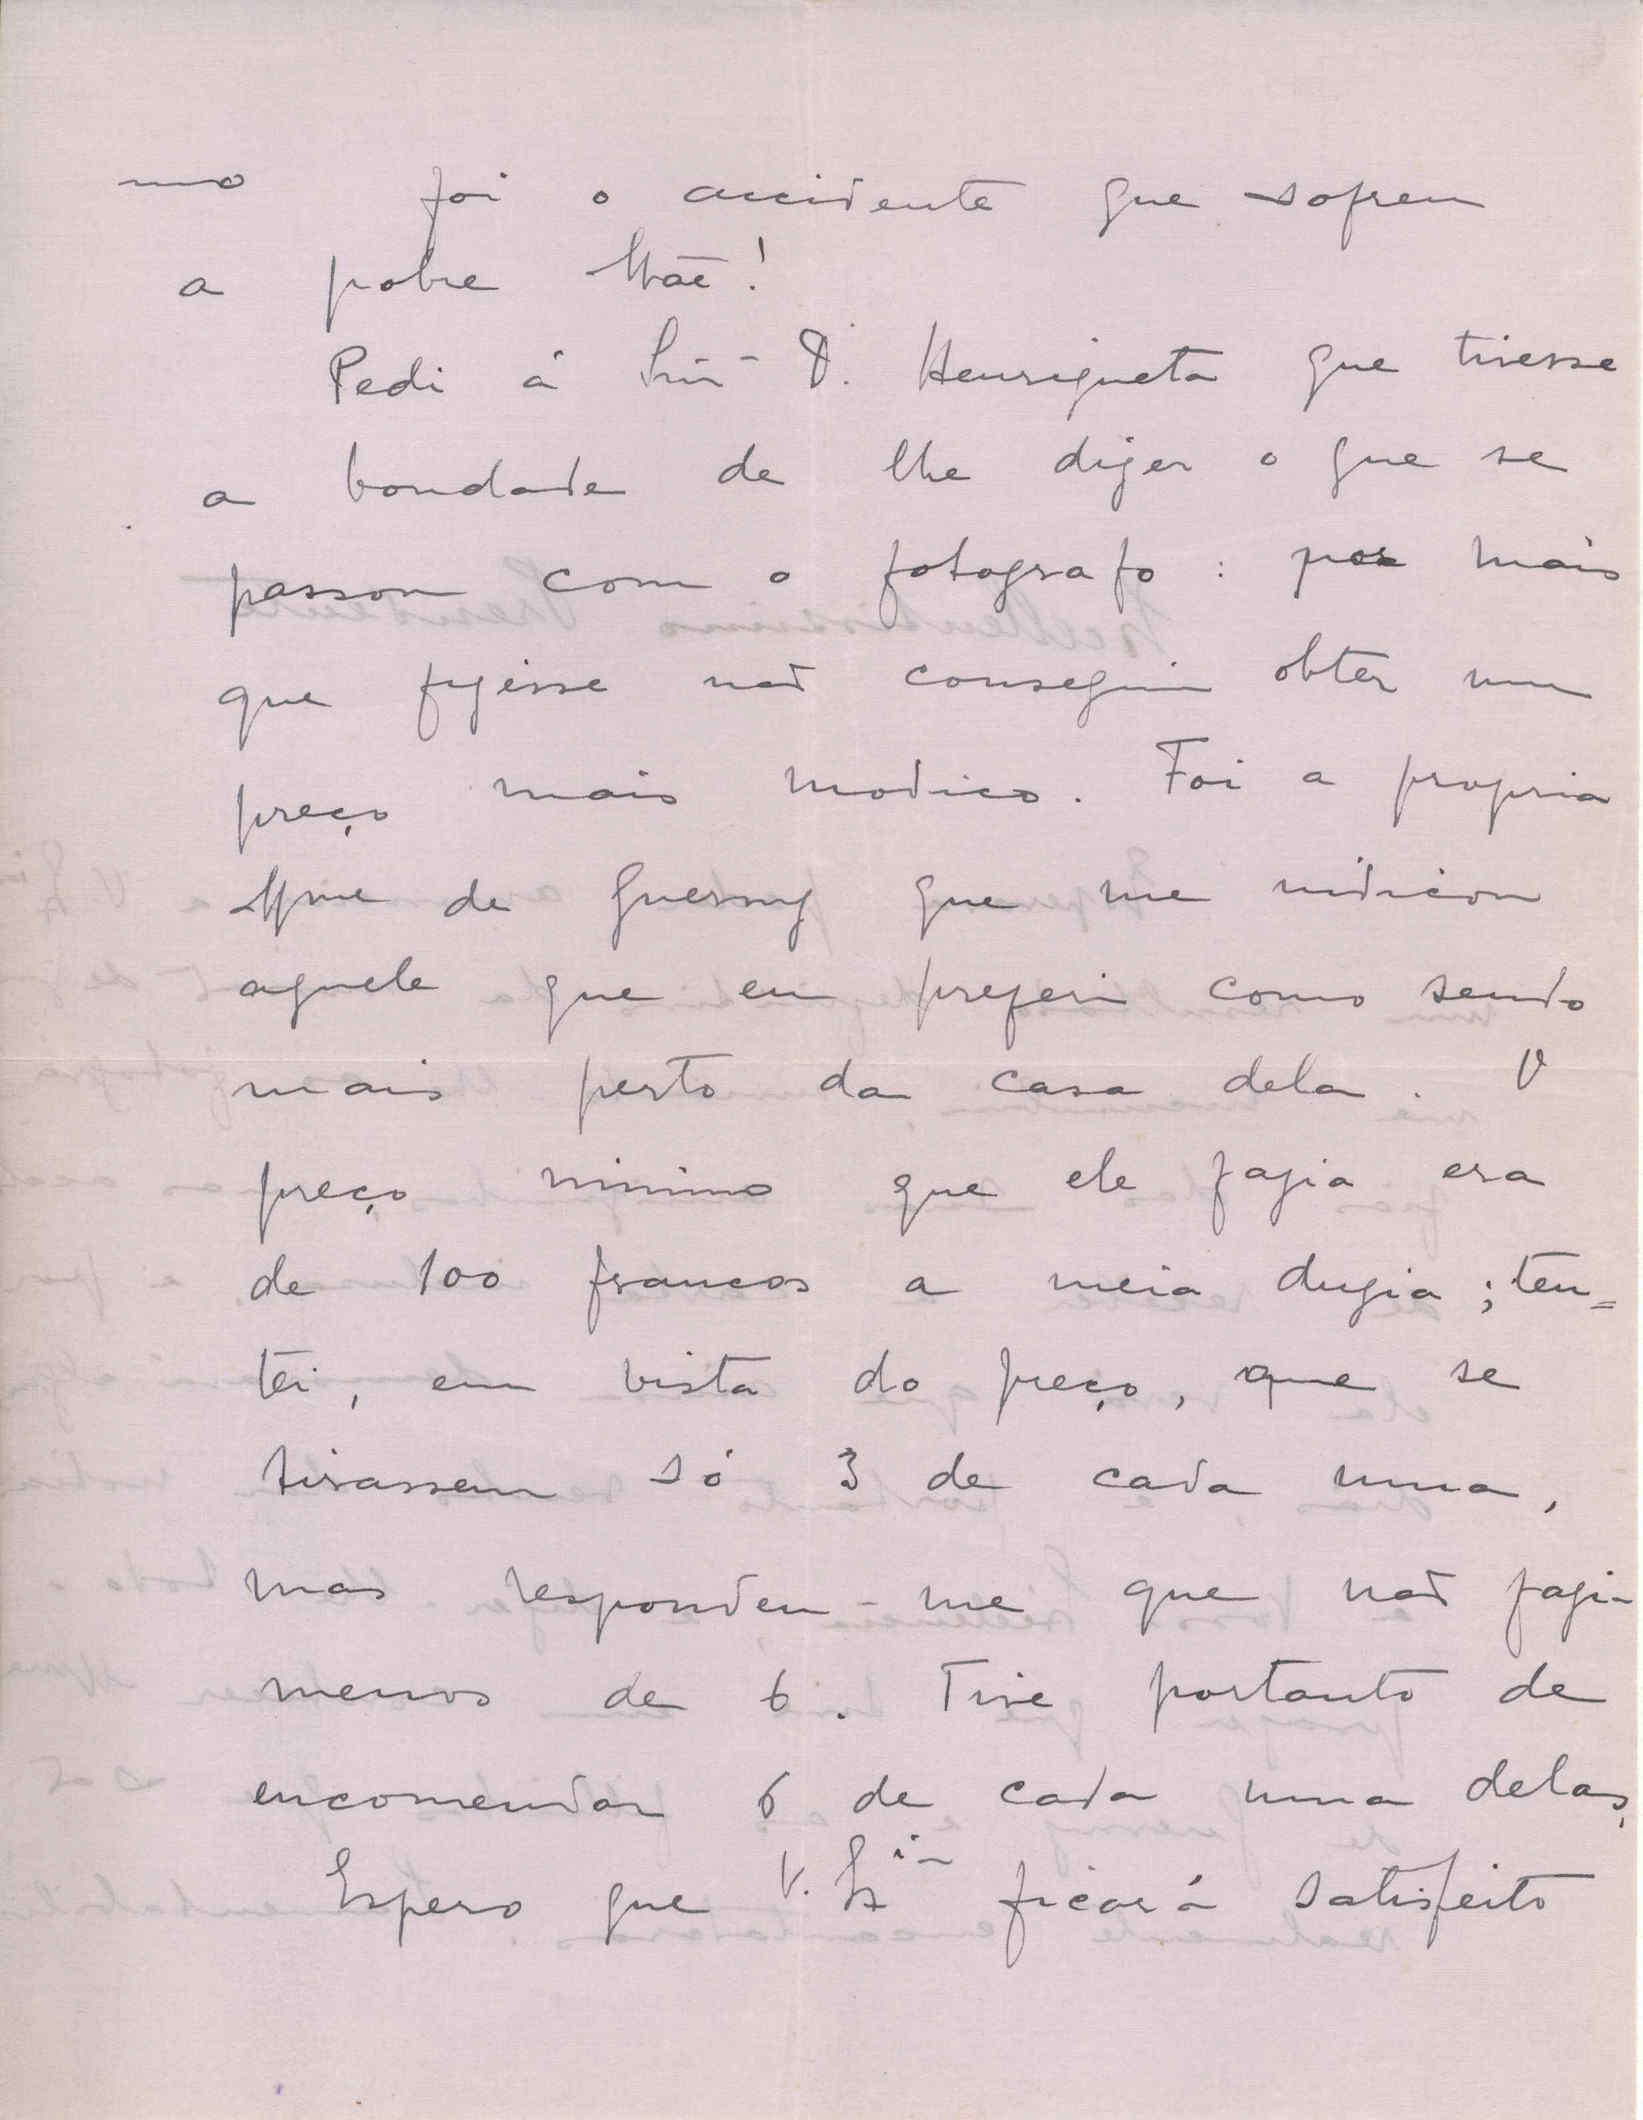 mo foi o accidente que sofreu
a pobre Mãe!
Pedi á Snrª D. Henriqueta que tivesse
a bondade de lhe dizer o que se
passou com o fotografo: por mais
que fizesse não consegui obter um
preço mais modico. Foi a propria
Mme de Guerny que me indicou
aquele que eu preferi como sendo
mais perto da casa dela. O
preço minimo que ele fazia era
de 100 francos a meia duzia; ten=
tei, em vista do preço, que se
tirassem só 3 de cada uma,
mas respondeu-me que não fazia
menos de 6. Tive portanto de
encomendar 6 de cada uma delas,
Espero que V. Exia ficará satisfeito